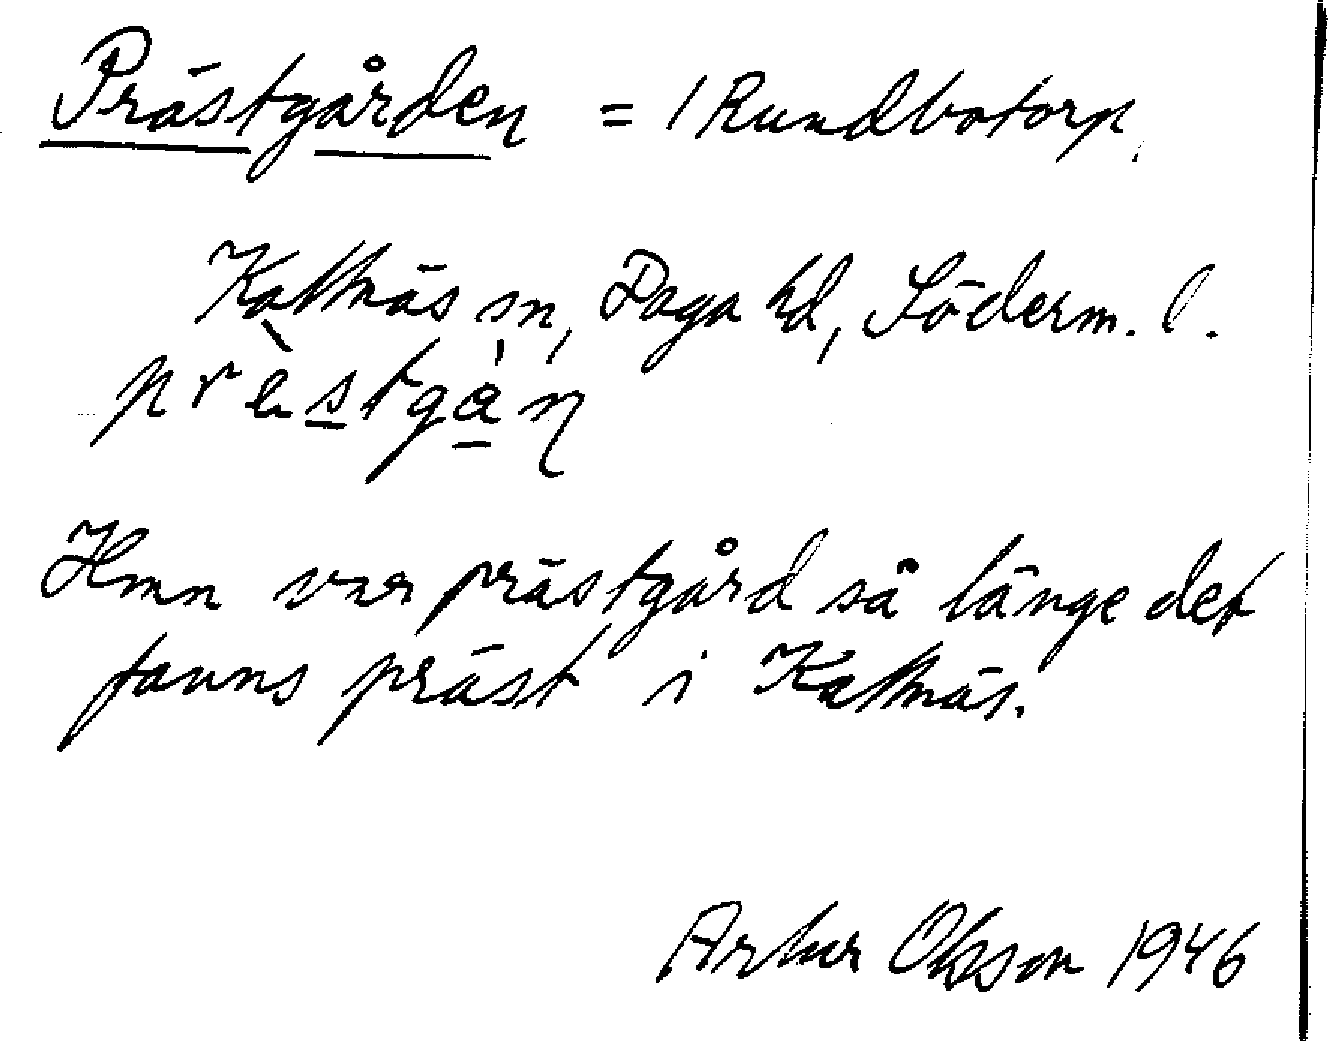 Prästgården = 1 Rundbotorp.
Kattnäs sn, Daga hd, Söderm. l.
prèstgàn
Hmn var prästgård så länge det
fanns präst i Kattnäs.
Artur Olsson 1946